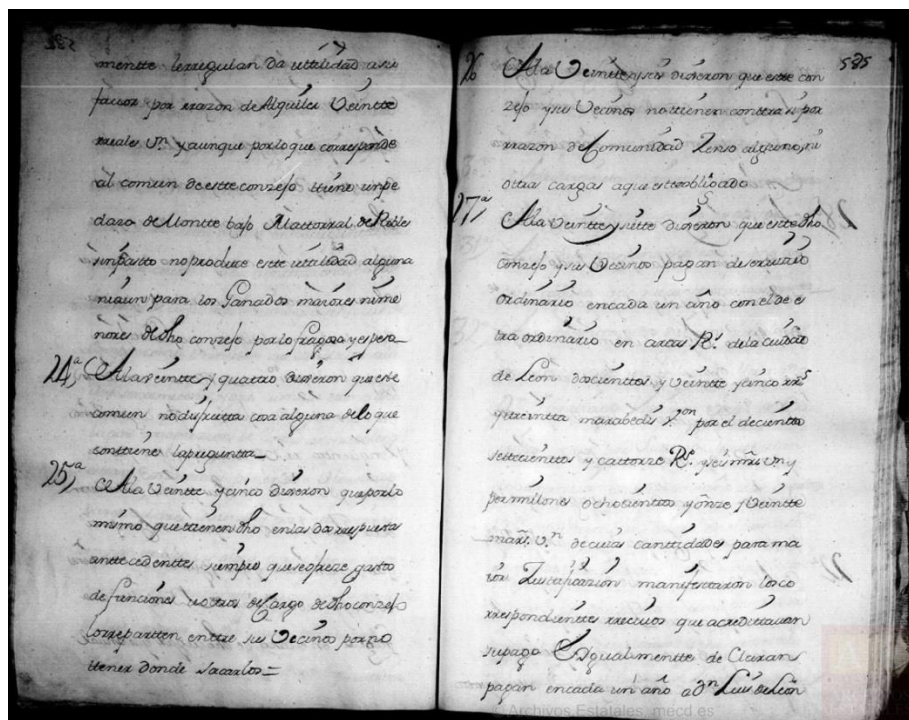 mentte lerregulan da uttilidad a su
fauor por rrazon de Alquiler Veintte
rreales Vn. y aunque por lo que corresponde
al comun de este conzejo ttiene un pe
dazo de Montte bajo Mattorral de Robles
sin pastto no produze este uttilidad alguna
ni aun para los Ganados maiores ni me
nores de dho conzejo por lo fragoso y espeso
24,a A la veintte y quattro dixeron que este
comun no disfrutta cosa alguna de lo que
conttiene la preguntta
25,a A la Veintte y cinco dixeron que por lo
mismo que ttienen dho en las dos rrespuestas
antecedenttes siempre que se ofreze gasto
de funciones u otros de Cargo de dho conzejo
lo rrepartten enttre sus Vecinos por no
ttener donde sacarlos =
535
26 A la Veintte y seis dixeron que este con
zejo y sus Vecinos no ttienen conttra si por
rrazon de Comunidad Zenso alguno, ni
ottras cargas a que estte obligado
27,a A la Veintte y siette dixeron que este dho
conzejo y sus Vecinos pagan de seruizio
ordinario en cada un año con el de e
xtraordinario en arcas Rs. de la ciudad
de Leon doscienttos y Veintte y cinco rrs
y ttreintta marabedis Von por el de cientto
settecienttos y cattorze Rs. y seis mrs Vn y
por millones ochocienttos y onze y Veintte
mars. Vn. de cuias canttidades para ma
ior Justificazion manifesttaron los co
rrespondienttes rreciuos que acredittauan
su pago Igualmentte declaran
pagan en cada un año a Dn Luis de Leon
Archivos Estatales, mecd.es